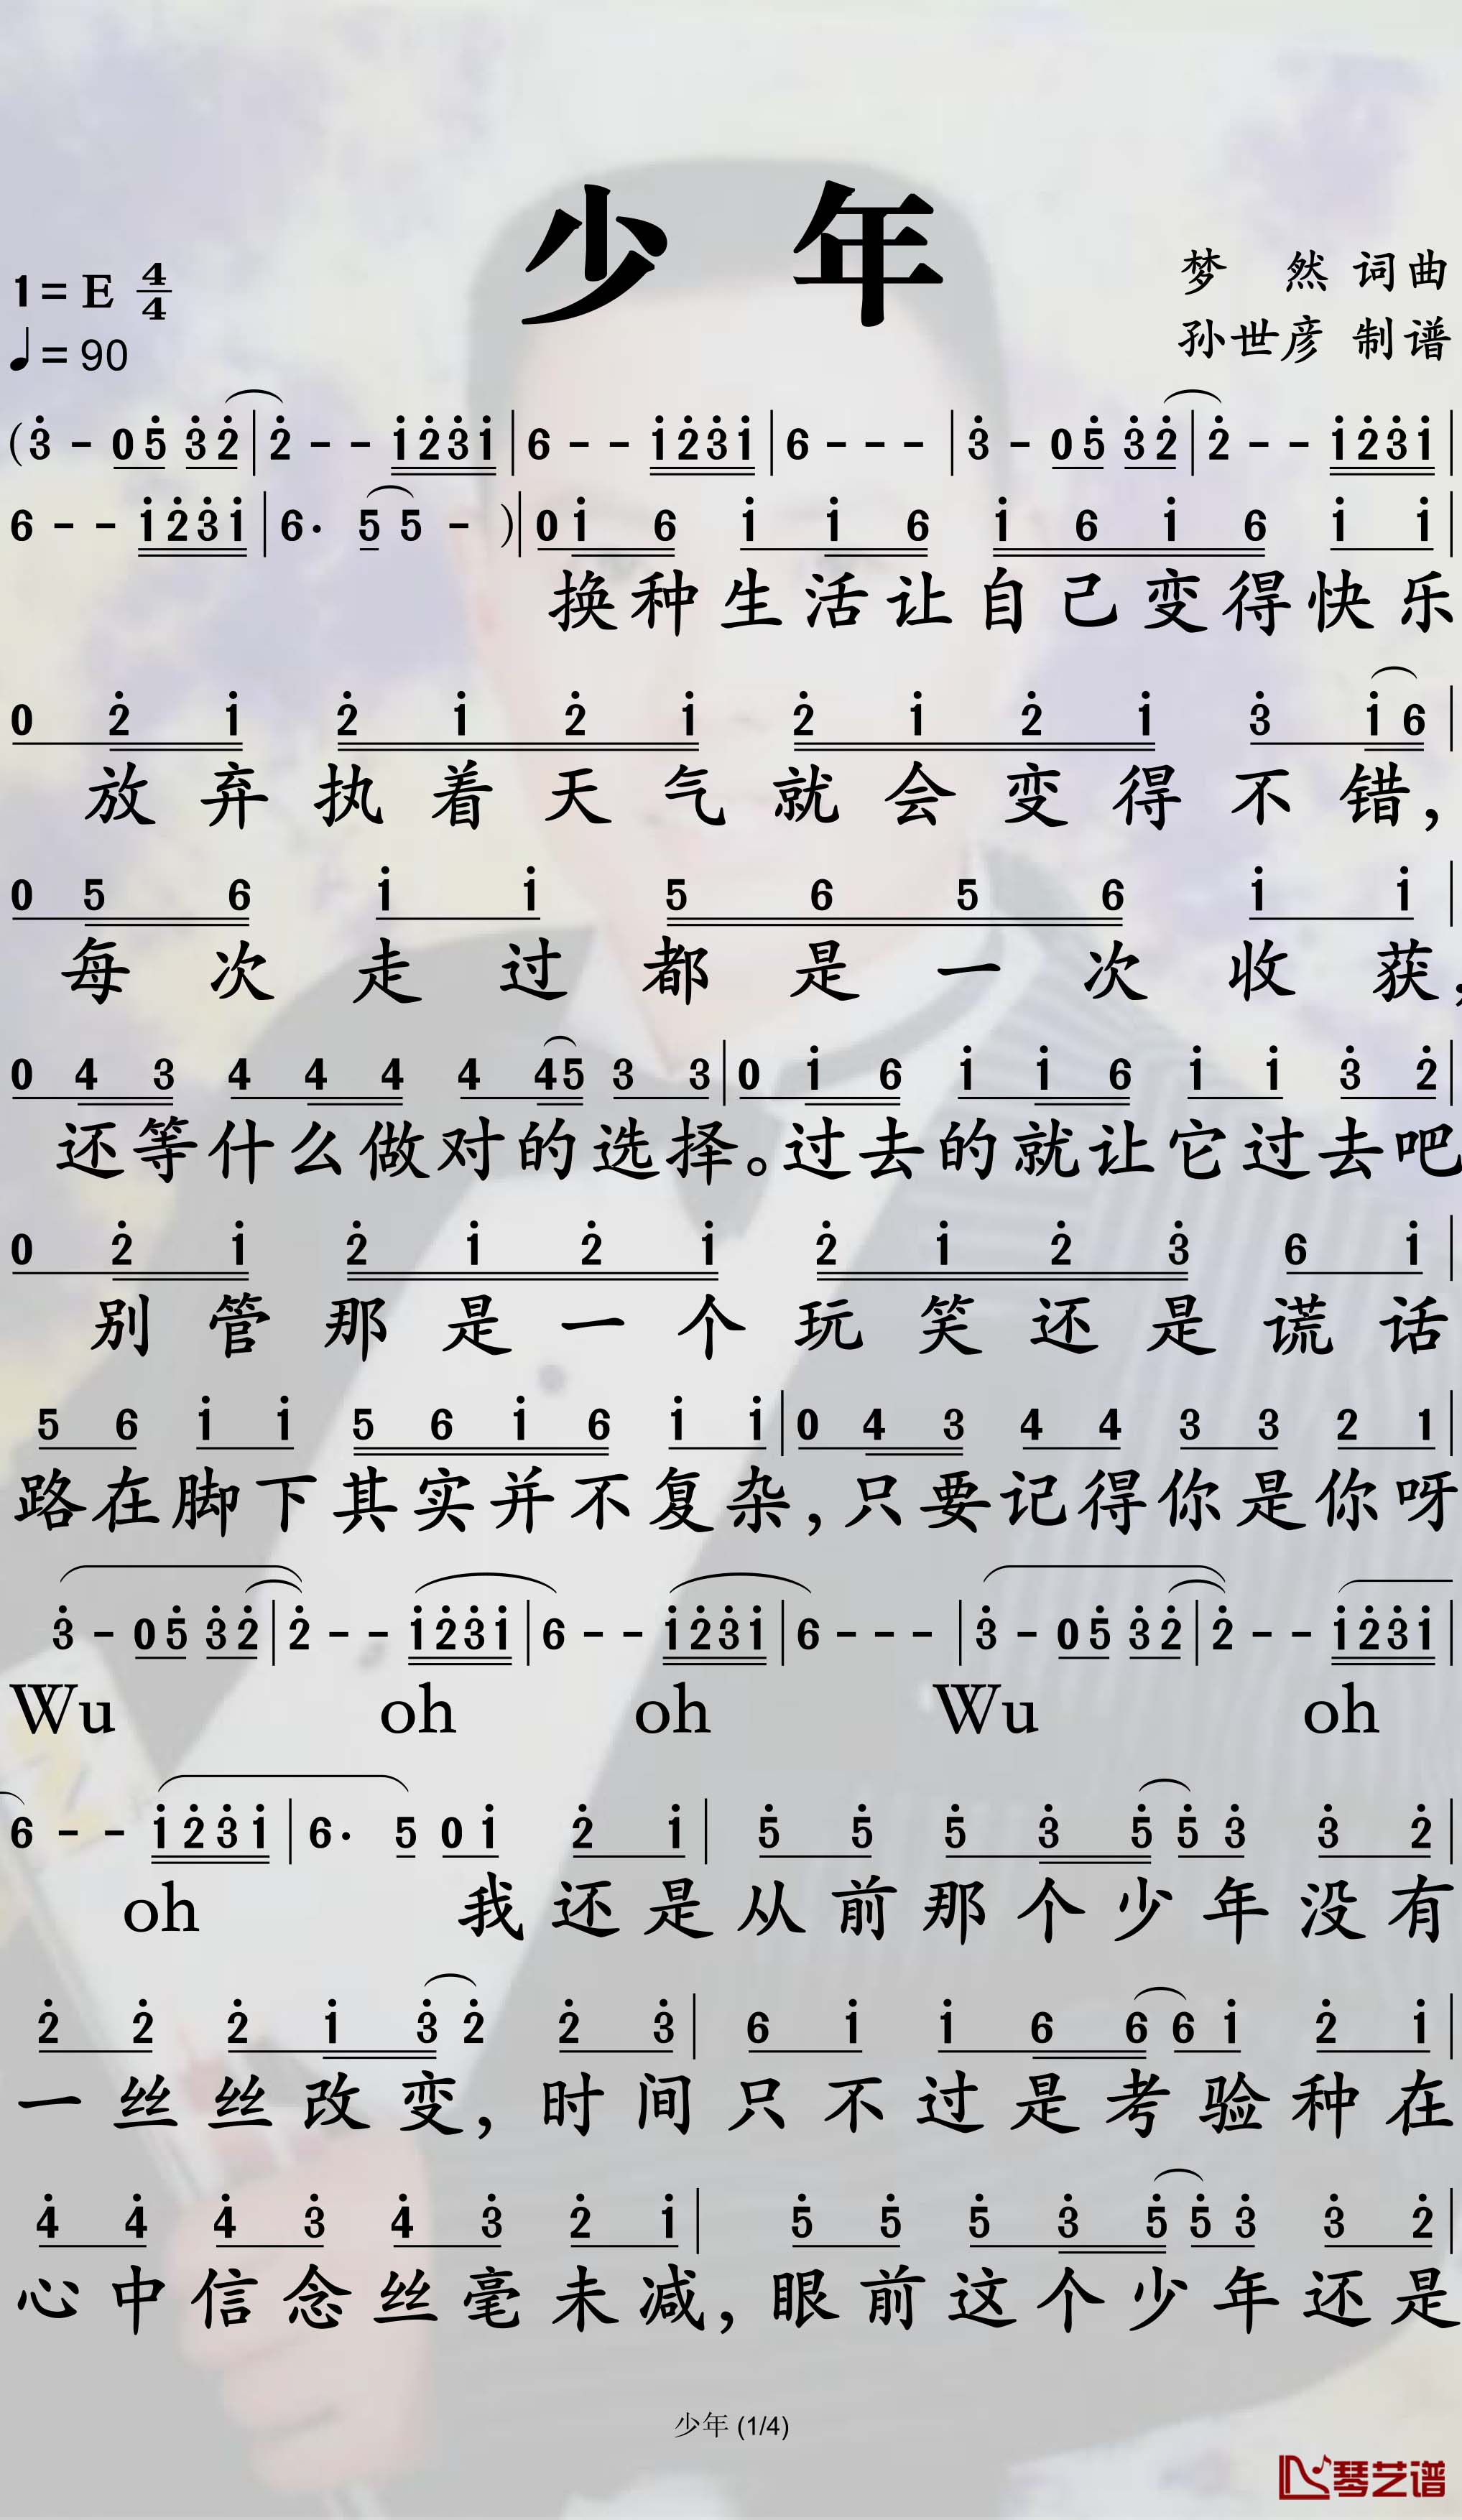 少 年
1=E 4/4
♩=90
梦 然 词曲
孙世彦 制谱
(3̇ - 0 5̇ 3̇ 2̇ | 2̇ - - 1̇ 2̇ 3̇ 1̇ | 6 - - 1̇ 2̇ 3̇ 1̇ | 6 - - - | 3̇ - 0 5̇ 3̇ 2̇ | 2̇ - - 1̇ 2̇ 3̇ 1̇ |
6 - - 1̇ 2̇ 3̇ 1̇ | 6· 5 5 - )| 0 1̇ 6 1̇ 1̇ 6 1̇ 6 1̇ 6 1̇ 1̇ |
换种生活让自己变得快乐
0 2̇ 1̇ 2̇ 1̇ 2̇ 1̇ 2̇ 1̇ 2̇ 1̇ 3̇ 1̇ 6 |
放弃执着天气就会变得不错,
0 5 6 1̇ 1̇ 5 6 5 6 1̇ 1̇ |
每次走过都是一次收获,
0 4 3 4 4 4 4 4 5 3 3 | 0 1̇ 6 1̇ 1̇ 6 1̇ 1̇ 3̇ 2̇ |
还等什么做对的选择。过去的就让它过去吧
0 2̇ 1̇ 2̇ 1̇ 2̇ 1̇ 2̇ 1̇ 2̇ 3̇ 6 1̇ |
别管那是一个玩笑还是谎话
5 6 1̇ 1̇ 5 6 1̇ 6 1̇ 1̇ | 0 4 3 4 4 3 3 2 1 |
路在脚下其实并不复杂,只要记得你是你呀
3̇ - 0 5̇ 3̇ 2̇ | 2̇ - - 1̇ 2̇ 3̇ 1̇ | 6 - - 1̇ 2̇ 3̇ 1̇ | 6 - - - | 3̇ - 0 5̇ 3̇ 2̇ | 2̇ - - 1̇ 2̇ 3̇ 1̇ |
Wu oh oh Wu oh
6 - - 1̇ 2̇ 3̇ 1̇ | 6· 5 0 1̇ 2̇ 1̇ | 5̇ 5̇ 5̇ 3̇ 5̇ 5̇ 3̇ 3̇ 2̇ |
oh 我还是从前那个少年没有
2̇ 2̇ 2̇ 1̇ 3̇ 2̇ 2̇ 3̇ | 6 1̇ 1̇ 6 6 6 1̇ 2̇ 1̇ |
一丝丝改变,时间只不过是考验种在
4̇ 4̇ 4̇ 3̇ 4̇ 3̇ 2̇ 1̇ | 5̇ 5̇ 5̇ 3̇ 5̇ 5̇ 3̇ 3̇ 2̇ |
心中信念丝毫未减,眼前这个少年还是
少年 (1/4)
琴艺谱